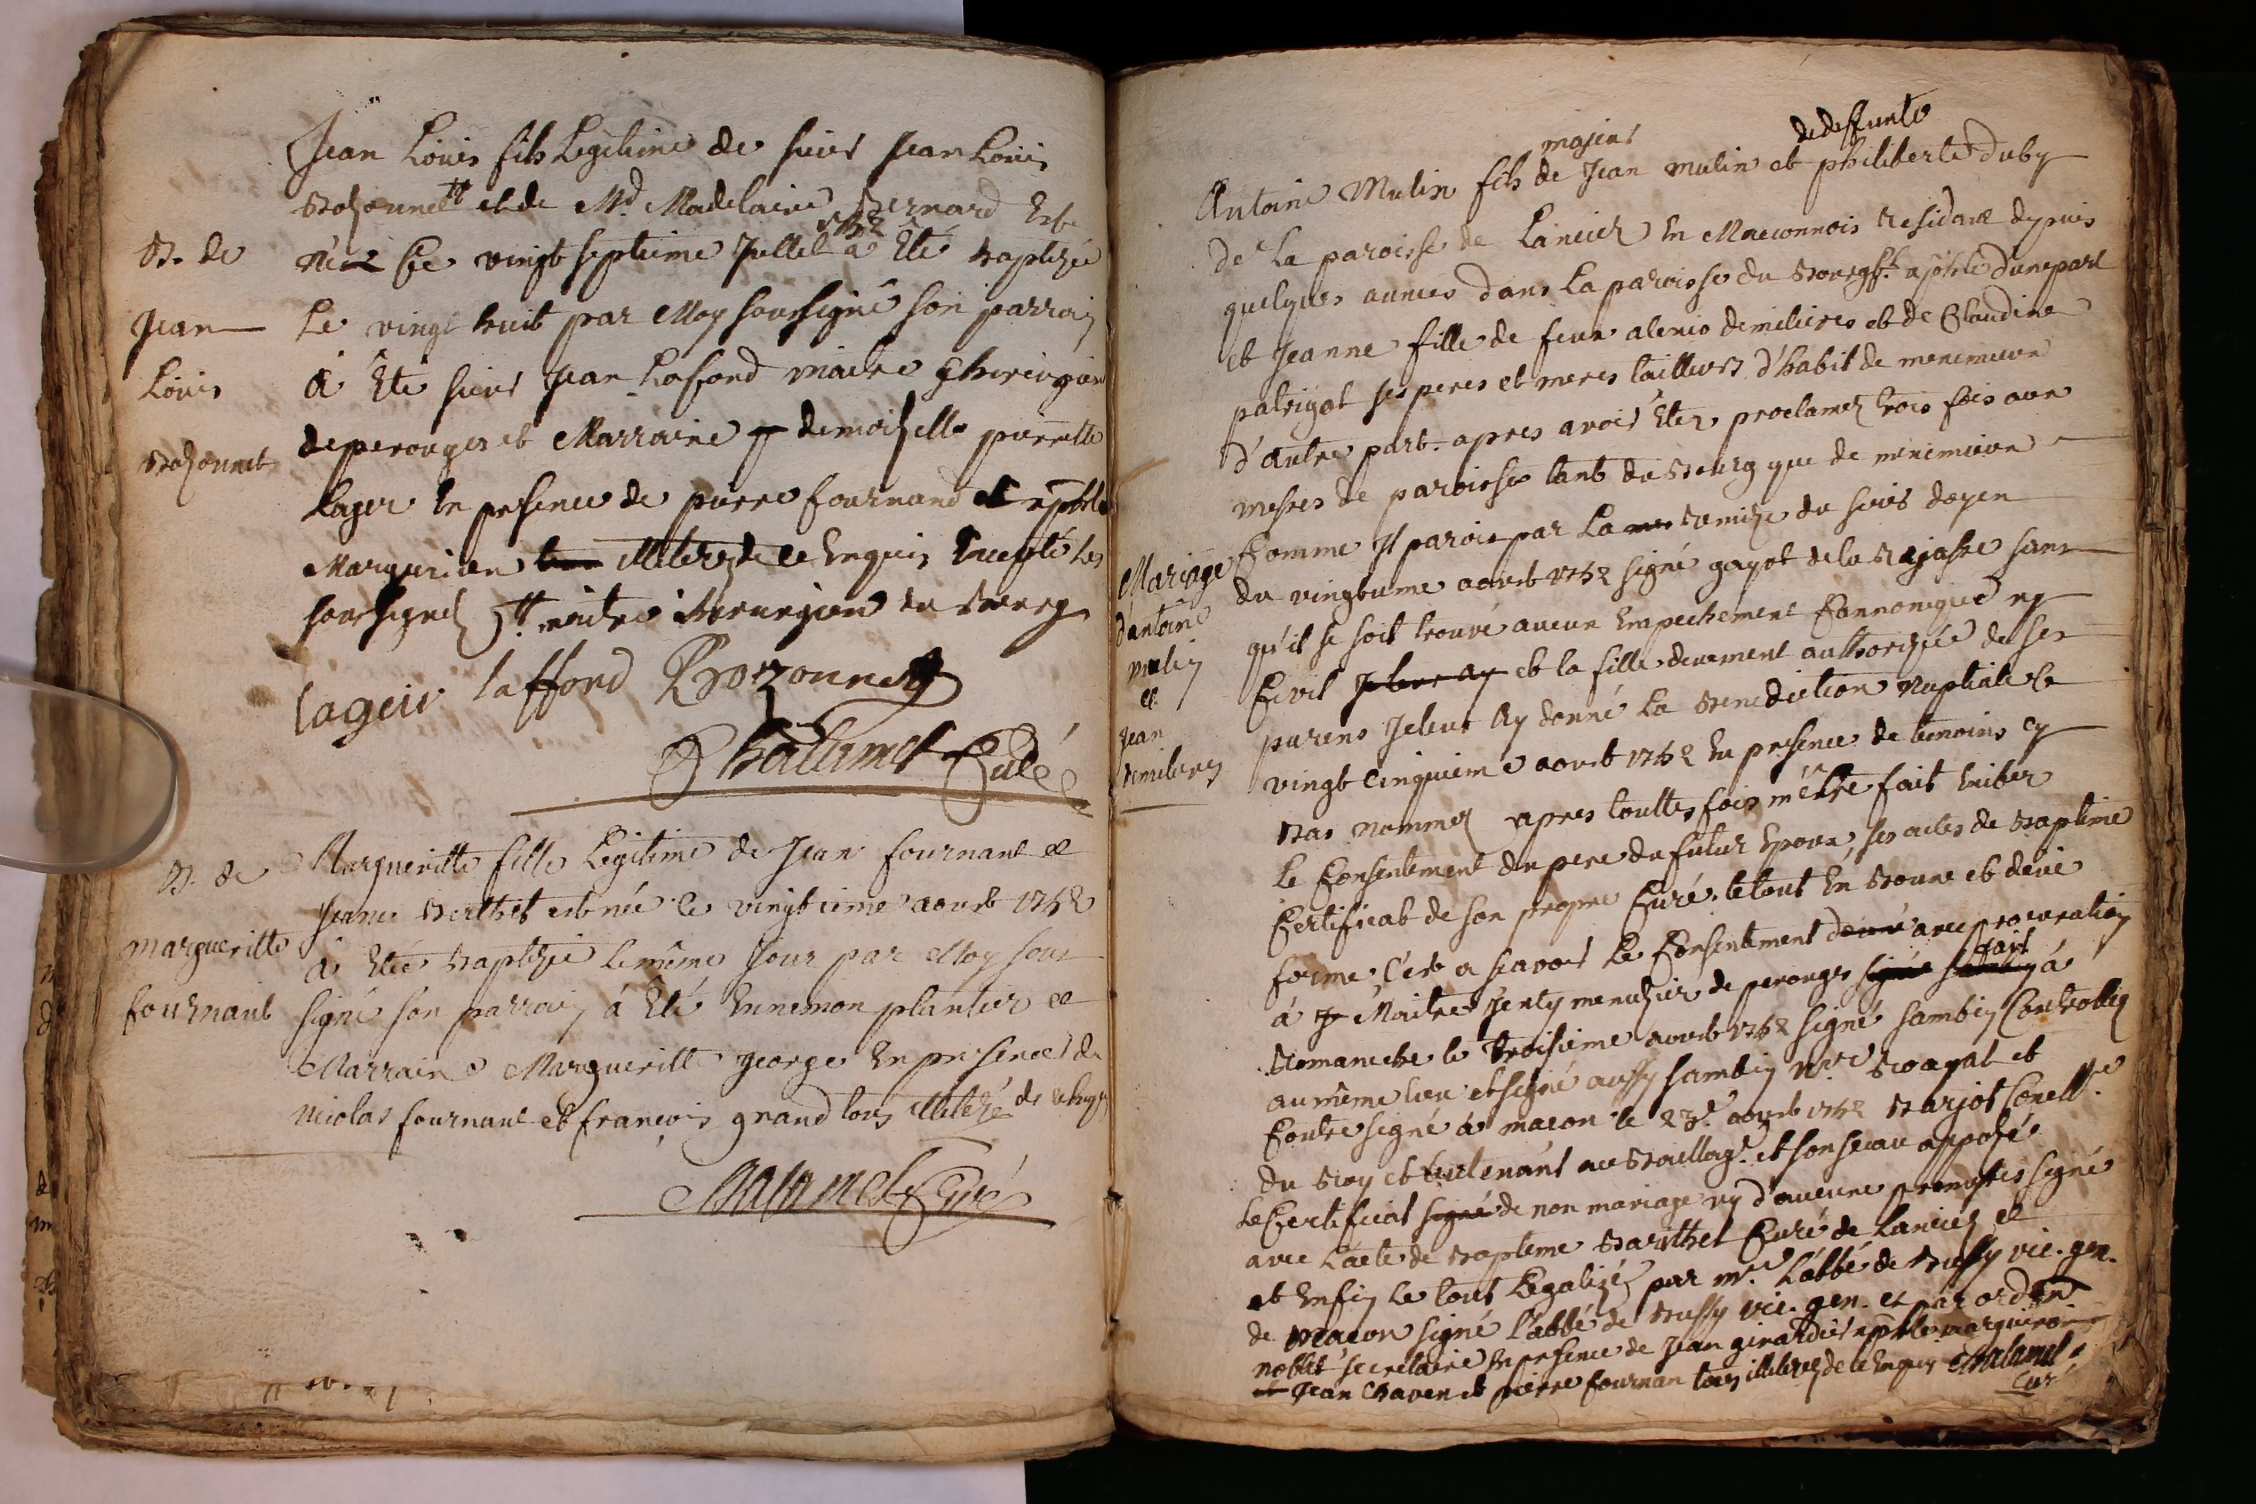 Jean Louis fils Legitime de sieur Jean Louis
Bozonnett et de Md. Madelaine Bernard Est
1762
né Ce vingt septieme Juillet a Eté Baptizée
Le vingt huit par Moy soussigné son parrain
à Eté sieur Jean Laffond maitre Chirurgien
de perouges et Marraine demoizelle pierrette
Lager En presence de pierre fournand et
Margueriten illiterez de ce Enquis Excepté les
soussignez maitre chirurgien du Bourg
B. de
Jean
Louis
Bozonnet
lager laffond Bozonnett
Chalamel Curé
B. de
margueritte
fournant
Marguerritte fille Legitime de Jean fournant et
Jeanne Berthet est née le vingtieme aoust 1762
à Etée Baptizée le même Jour par Moy sous
signé son parrain à Eté Ennemon plantier et
Marraine Margueritte george En presence de
nicolas fournant et françois grand tous illiteré de ce Enquis
Chalamel Curé
majeur
de deffunte
Antoine Mulin fils de Jean mulin et philiberte duby
de La paroisse de Lancié En Maconnois Residant depuis
quelques années dans La paroisse du Bourg St. Christophle dune part
et Jeanne fille de feux alexis demilieres et de Claudine
patrigot ses peres et meres tailleurs d'habit de meximieux
d'autre part. apres avoir Eter proclamez trois fois aux
messes de paroisse tant du Bourg que de meximieux
Comme Jl parois par La Remize du sieur doyen
du vingtume aoust 1762 signé gayot de la Rajasse sans
qu'il se soit trouvé aucun Empechement Cannonique ny
Civil et la fille deuement authorizée de ses
parens Je leur Ay donné La Benediction Nuptiale le
vingt Cinquieme aoust 1762 En presence de temoins cy
Bas nommez apres touttes fois m'être fait Exiber
Le Consentement du pere du futur Epoux, ses actes de Baptême
Certificat de son propre Curé. le tout En Bonne et deüe
forme, C'est a scavoir Le Consentement avec procuration
fait
à Maitre Jenty menuzier de perouges à
Romaneche le troisieme aoust 1762 signé sambin Controllez
au même lieu et signé aussy sambin Nre. Royal et
Contresigné à macon le 23e. aoust 1762 Barjot Conellr.
du Roy et Lieutenant au Baillage. et son seau apposé
le Certificat de non mariage ny d'aucune promesses signé
avec l'acte de Baptême Barithel Curé de Lancié et
et Enfin Le tout Legalizé par mr. L'abbé de Bussy vic. gen.
de Macon signé L'abbé de Bussy vic. gen. et par ordon
noblet secretaire En presence de Jean girardier
Jean Chaven et pierre fournan tous illiterez de ce Enquis Chalamel
Curé
Mariage
d'antoine
mulin
et
Jean
demilieres